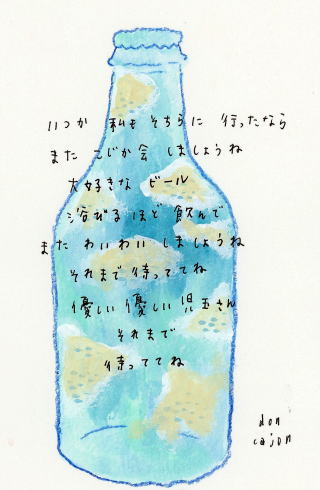 いつか 私も そちらに 行ったなら
また こじか会 しましょうね
大好きな ビール
浴びる ほど 飲んで
また わいわい しましょうね
それまで 待っててね
優しい 優しい 児玉さん
それまで
待っててね
don
cajon